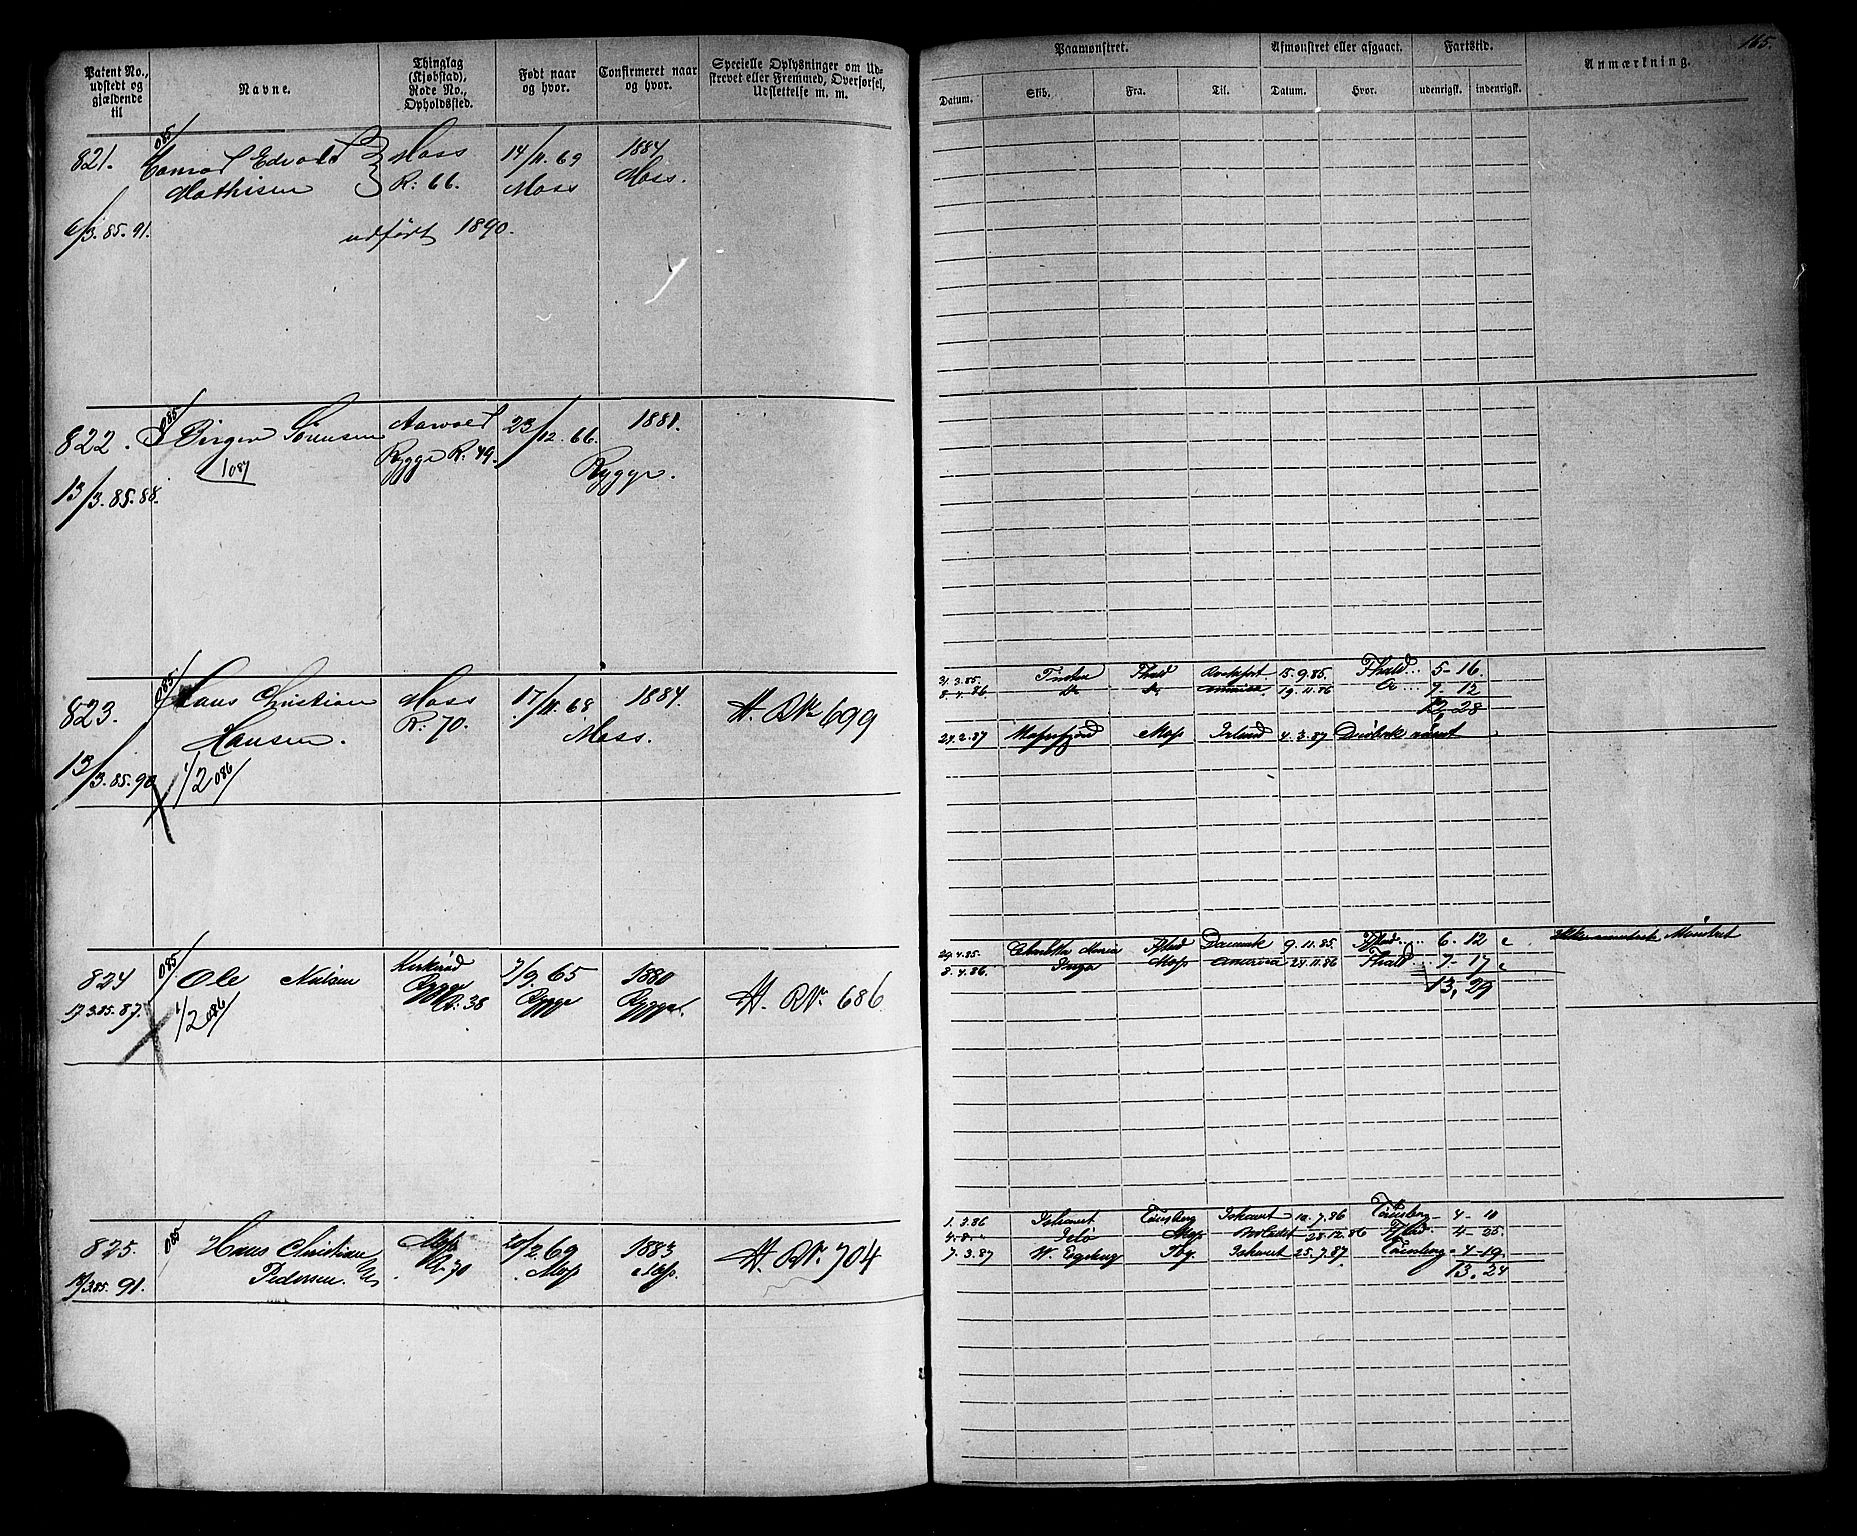 165.
Patent No., udstedt og gjældende til
Navne.
Thinglag (Kjøbstad), Rode No., Opholdssted.
Født naar og hvor.
Confirmeret naar og hvor.
Specielle Oplysninger om Udskrevet eller Fremmed, Overførsel, Udslettelse m. m.
Paamønstret.
Afmønstret eller afgaaet.
Fartstid.
Anmærkning.
Datum.
Skib.
Fra.
Til.
Datum.
Hvor.
udenrigsk.
indenrigsk.
085/
821. Conrad Edvald Moss 14/11.69 1884
Mathisen R: 66. Moss Moss.
6/3.85.91. udført 1890.
085/
822. Birger Sørensen Aarvold 23/12.66. 1881.
1087 Rygge R: 49. Rygge.
13/3.85.88.
085/
823. Hans Christian Moss 17/11.68 1884. H. RNr 699
Hansen. R: 70. Moss.
13/3.85.90 1/2 086/
31.3.85. Fhald 15.9.85. Fhald 5-16
8.4.86 Do Do 19.11.86 9-12
28
Mossefjord Moss Island 4.3.87
085/
824 Ole Nielsen 7/9 65 1880 H. RNr. 686
17.3.85.87. 1/2 086/ Rygge R: 38 Rygge Rygge.
29.4.85. Maria Danmark 9.11.85. 6-12
8.4.86. Inga Moss 24.11.86 Fhald 7-17
13,29
085
825. Hans Christian Moss 20/2 69 1883 H. RNr. 704
17/3.85.91. Pedersen. R. 70 Moss Moss.
1.3.86 Ishavet Tønsberg Ishavet 10.7.86 Tønsberg 4-10
4.8. " Jelø Moss 28.12.86 4-25.
7.3.87 Tbg. Ishavet 25.7.87. Tønsberg 4-19.
13.24